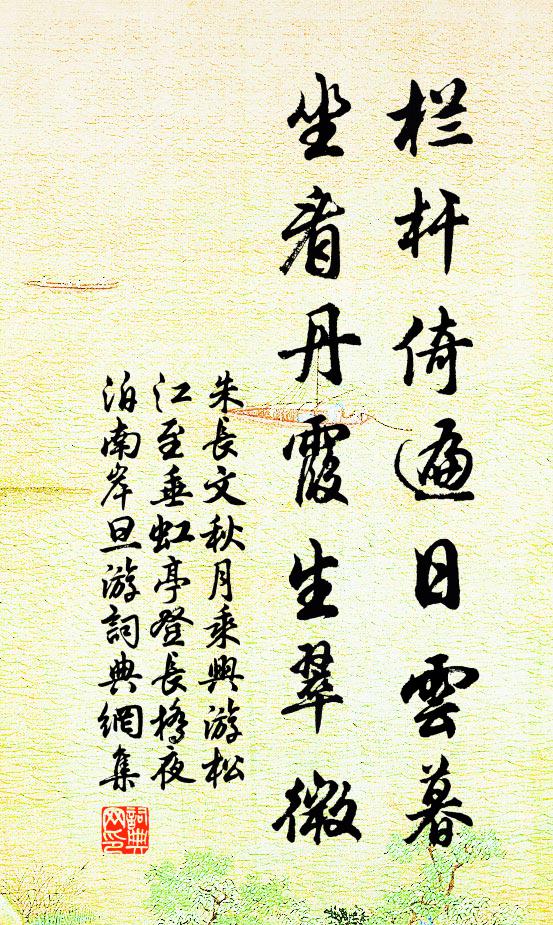 栏杆倚遍日雲暮
坐看丹霞生翠微
朱長文秋月乘興游松
江至垂虹亭登長橋夜
泊南岸旦游詞典網集
詞典
网印